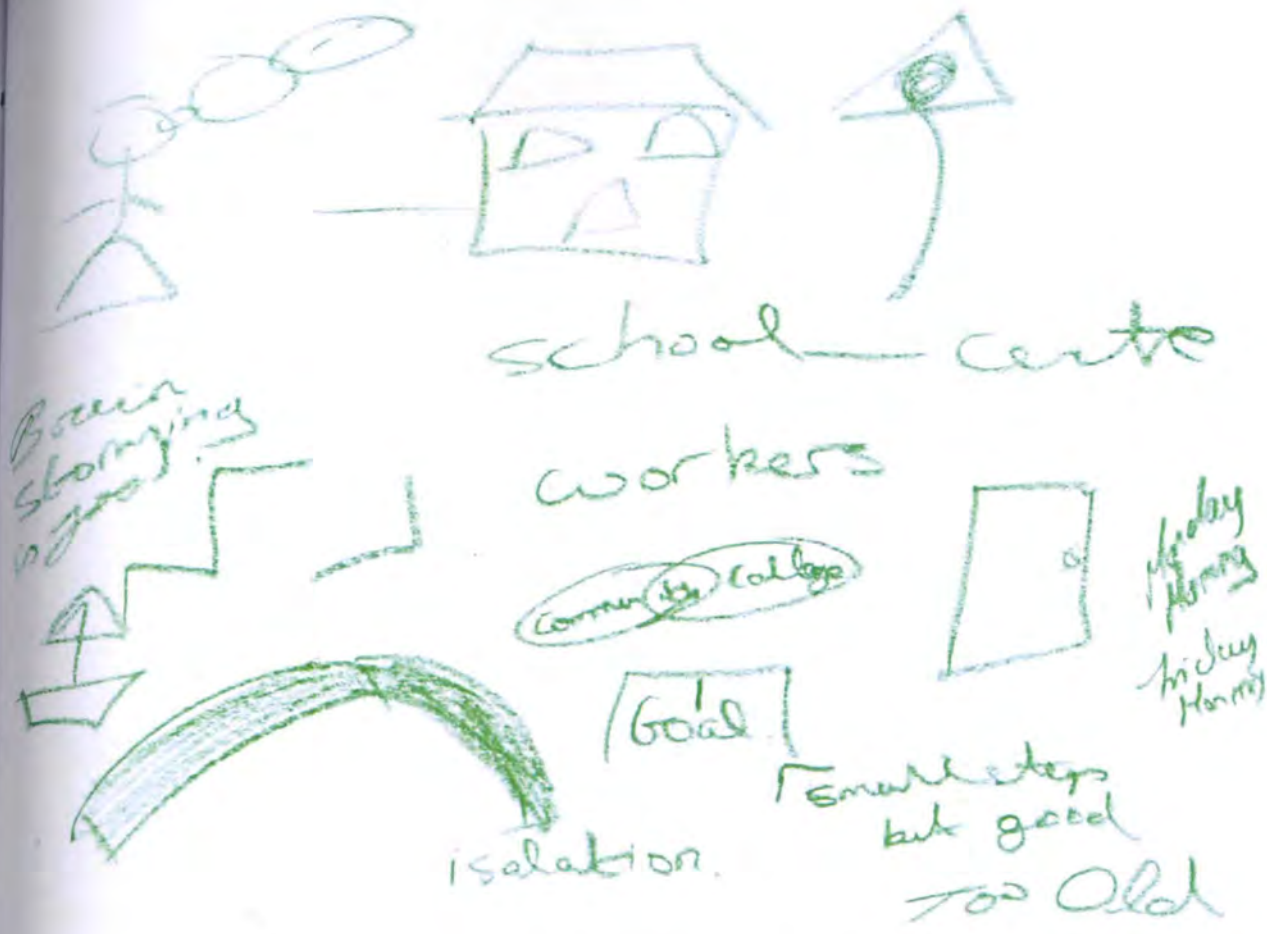 school — certe
Brain
storming
is good.
workers
Community College
Monday
Morning
friday
Morning
Goal
small steps
but good
isolation.
Too Old